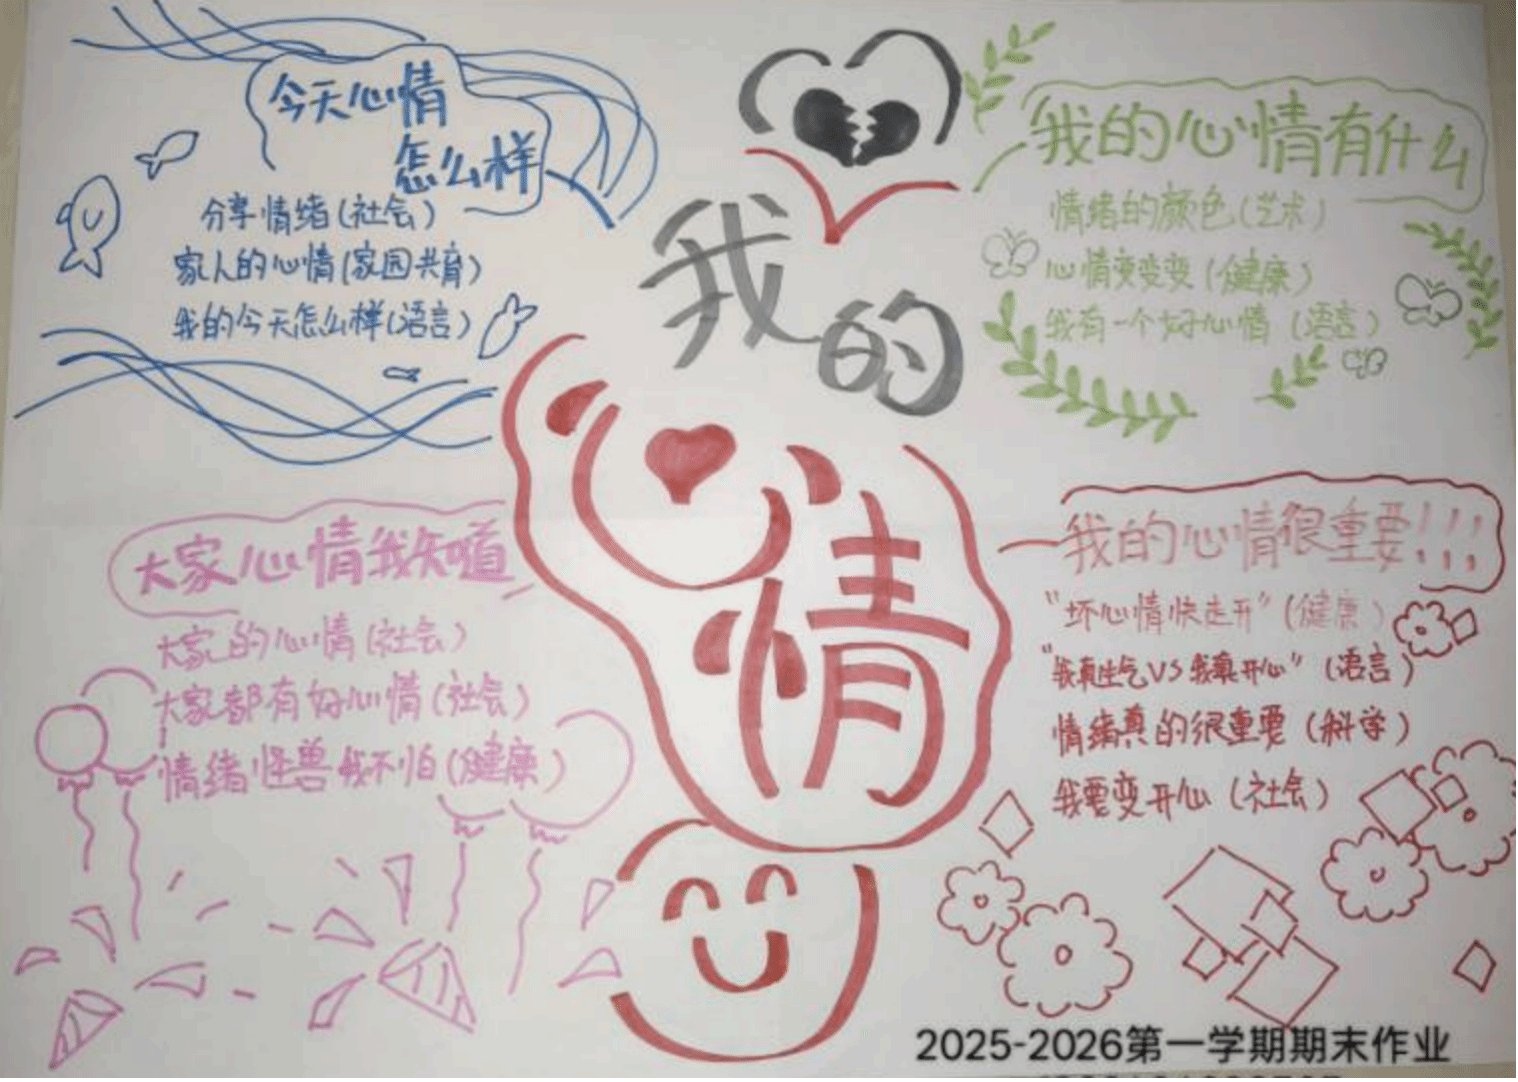 我的
心情
今天心情
怎么样
分享情绪(社会)
家人的心情(家园共育)
我的今天怎么样(语言)
我的心情有什么
情绪的颜色(艺术)
心情变变变(健康)
我有一个好心情(语言)
大家心情我知道
大家的心情(社会)
大家都有好心情(社会)
情绪怪兽我不怕(健康)
我的心情很重要!!!
“坏心情快走开”(健康)
“我真生气VS我真开心”(语言)
情绪真的很重要(科学)
我要变开心(社会)
2025-2026第一学期期末作业